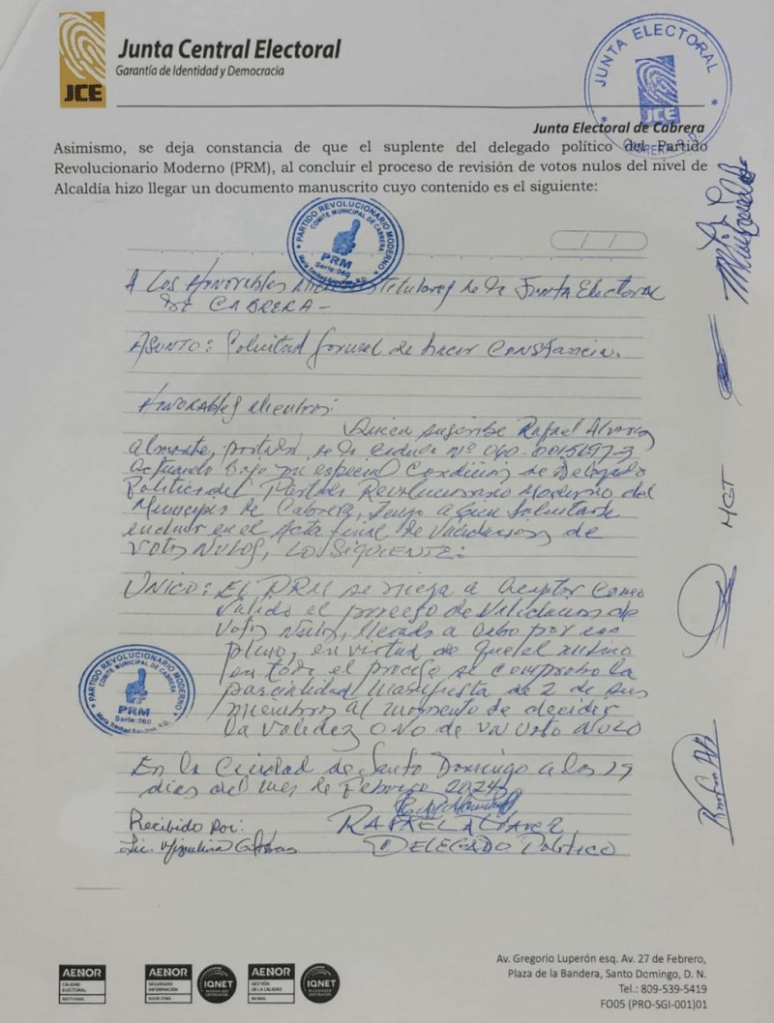 JCE
Junta Central Electoral
Garantía de Identidad y Democracia
JUNTA ELECTORAL
JCE
CABRERA, R.D.
Junta Electoral de Cabrera
Asimismo, se deja constancia de que el suplente del delegado político del Partido
Revolucionario Moderno (PRM), al concluir el proceso de revisión de votos nulos del nivel de
Alcaldía hizo llegar un documento manuscrito cuyo contenido es el siguiente:
PARTIDO REVOLUCIONARIO MODERNO
COMITE MUNICIPAL DE CABRERA
PRM
Serie:060
A Los Honorables titulares de la Junta Electoral
DE CABRERA-
ASUNTO: Solicitud formal de hacer CONSTANCIA.
HONORABLES Miembros:
Quien suscribe Rafael Alvarez
Almonte, de la cedula Nº
Actuando bajo mi especial Condicion de Delegado
Politico del Partido Revolucionario Moderno del
Municipio de Cabrera, tengo a bien solicitarle
incluir en el Acta final de Validacion de
VOTOS NULOS, LO SIGUIENTE:
UNICO: EL PRM se niega a aceptar como
valido el proceso de Validacion de
Votos Nulos, llevado a cabo por ese
pleno, en virtud de que el mismo
en todo el proceso se comprobo la
parcialidad Manifiesta de 2 de sus
miembros al momento de decidir
la validez O NO de un Voto NULO
PARTIDO REVOLUCIONARIO MODERNO
COMITE MUNICIPAL DE CABRERA
PRM
Serie:060
En la Ciudad de Santo Domingo a los 29
dias del mes de Febrero 2024
Recibido Por: RAFAEL ALVAREZ
Lic. DELEGADO Politico
MGT
AENOR
AENOR
IQNET
AENOR
IQNET
Av. Gregorio Luperón esq. Av. 27 de Febrero,
Plaza de la Bandera, Santo Domingo, D. N.
Tel.: 809-539-5419
FO05 (PRO-SGI-001)01